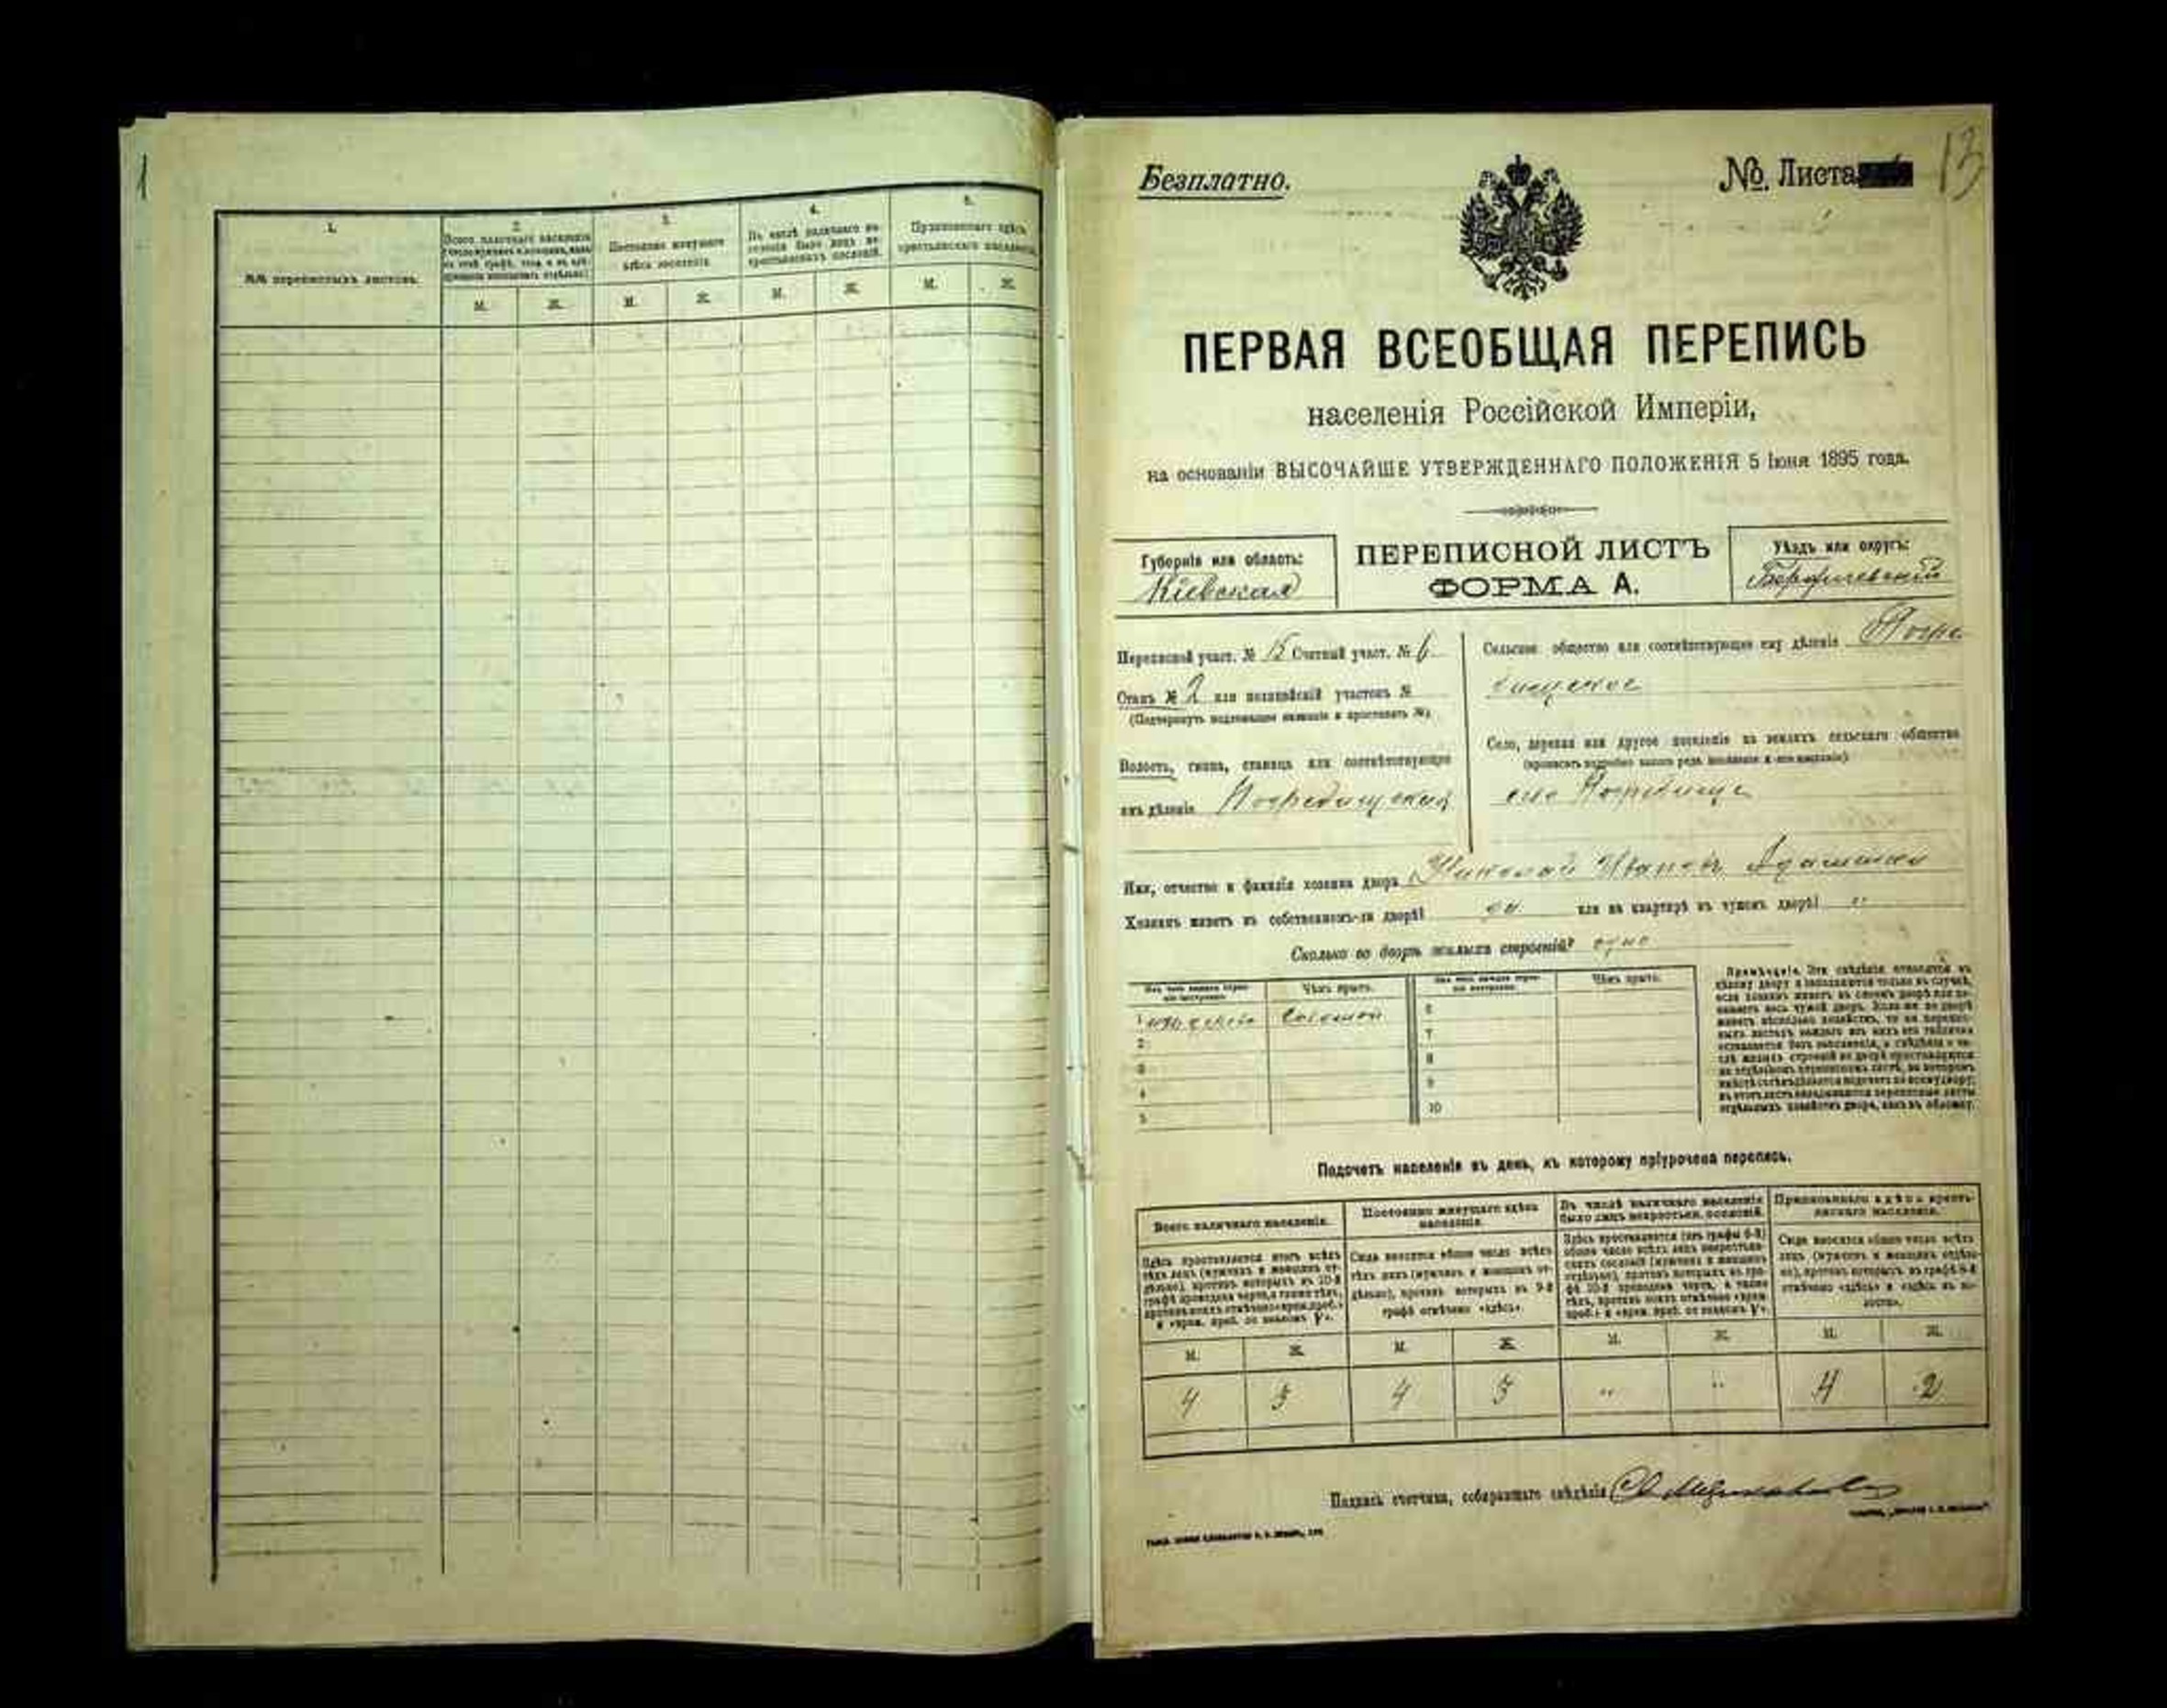 1
1.
2.
3.
4.
5.
№№ переписныхъ листовъ.
Всего наличнаго населенія
Постоянно живущаго здѣсь населенія
Въ числѣ наличнаго населенія было лицъ некрестьянскихъ сословій.
Приписаннаго здѣсь крестьянскаго населенія
М. Ж. М. Ж. М. Ж. М. Ж.
13
Безплатно.
№. Листа
ПЕРВАЯ ВСЕОБЩАЯ ПЕРЕПИСЬ
населенія Россійской Имперіи,
на основаніи ВЫСОЧАЙШЕ УТВЕРЖДЕННАГО ПОЛОЖЕНІЯ 5 Іюня 1895 года.
Губернія или область:
Кіевская
ПЕРЕПИСНОЙ ЛИСТЪ
ФОРМА А.
Уѣздъ или округъ:
Бердичевскій
Переписной участ. № 15 Счетный участ. № 6
Станъ № 2 или полицейскій участокъ №
(Подчеркнуть надлежащее названіе и проставить №)
Волость, гмина, станица или соотвѣтствующее
имъ дѣленіе
Сельское общество или соотвѣтствующее ему дѣленіе Погре
бищское
Село, деревня или другое поселеніе на земляхъ сельскаго общества
(прописать подробно какого рода поселеніе и его названіе)
село Погребище
Имя, отчество и фамилія хозяина двора Николай Ивановъ
Хозяинъ живетъ въ собственномъ-ли дворѣ? да или на квартирѣ въ чужомъ дворѣ? "
Сколько во дворѣ жилыхъ строеній? одно
Изъ чего каждое строеніе построено.
Чѣмъ крыто.
Изъ чего каждое строеніе построено.
Чѣмъ крыто.
1 изъ дерева Соломой
2
3
4
5
6
7
8
9
10
Примѣчаніе. Эти свѣдѣнія относятся къ
цѣлому двору и заполняются только въ случаѣ,
если хозяинъ живетъ въ своемъ дворѣ или занимаетъ весь чужой дворъ.
отдѣльныхъ хозяйствъ двора, какъ въ обложку.
Подсчетъ населенія въ день, къ которому пріурочена перепись.
Всего наличнаго населенія.
Постоянно живущаго здѣсь населенія.
Въ числѣ наличнаго населенія было лицъ некрестьян. сословій.
Приписаннаго здѣсь крестьянскаго населенія.
Здѣсь проставляется итогъ всѣхъ тѣхъ лицъ (мужчинъ и женщинъ отдѣльно), противъ которыхъ въ 10-й графѣ проведена черта, а также тѣхъ, противъ коихъ отмѣчено «врем. проб.» и «врем. преб. со знакомъ V».
Сюда вносится общее число всѣхъ тѣхъ лицъ (мужчинъ и женщинъ отдѣльно), противъ которыхъ въ 9-й графѣ отмѣчено «здѣсь».
Сюда вносится общее число всѣхъ лицъ (мужчинъ и женщинъ отдѣльно), противъ которыхъ въ графѣ 8-й отмѣчено «здѣсь» и «здѣсь въ волости».
М. Ж. М. Ж. М. Ж. М. Ж.
4 3 4 3 " " 4 2
Подпись счетчика, собиравшаго свѣдѣнія